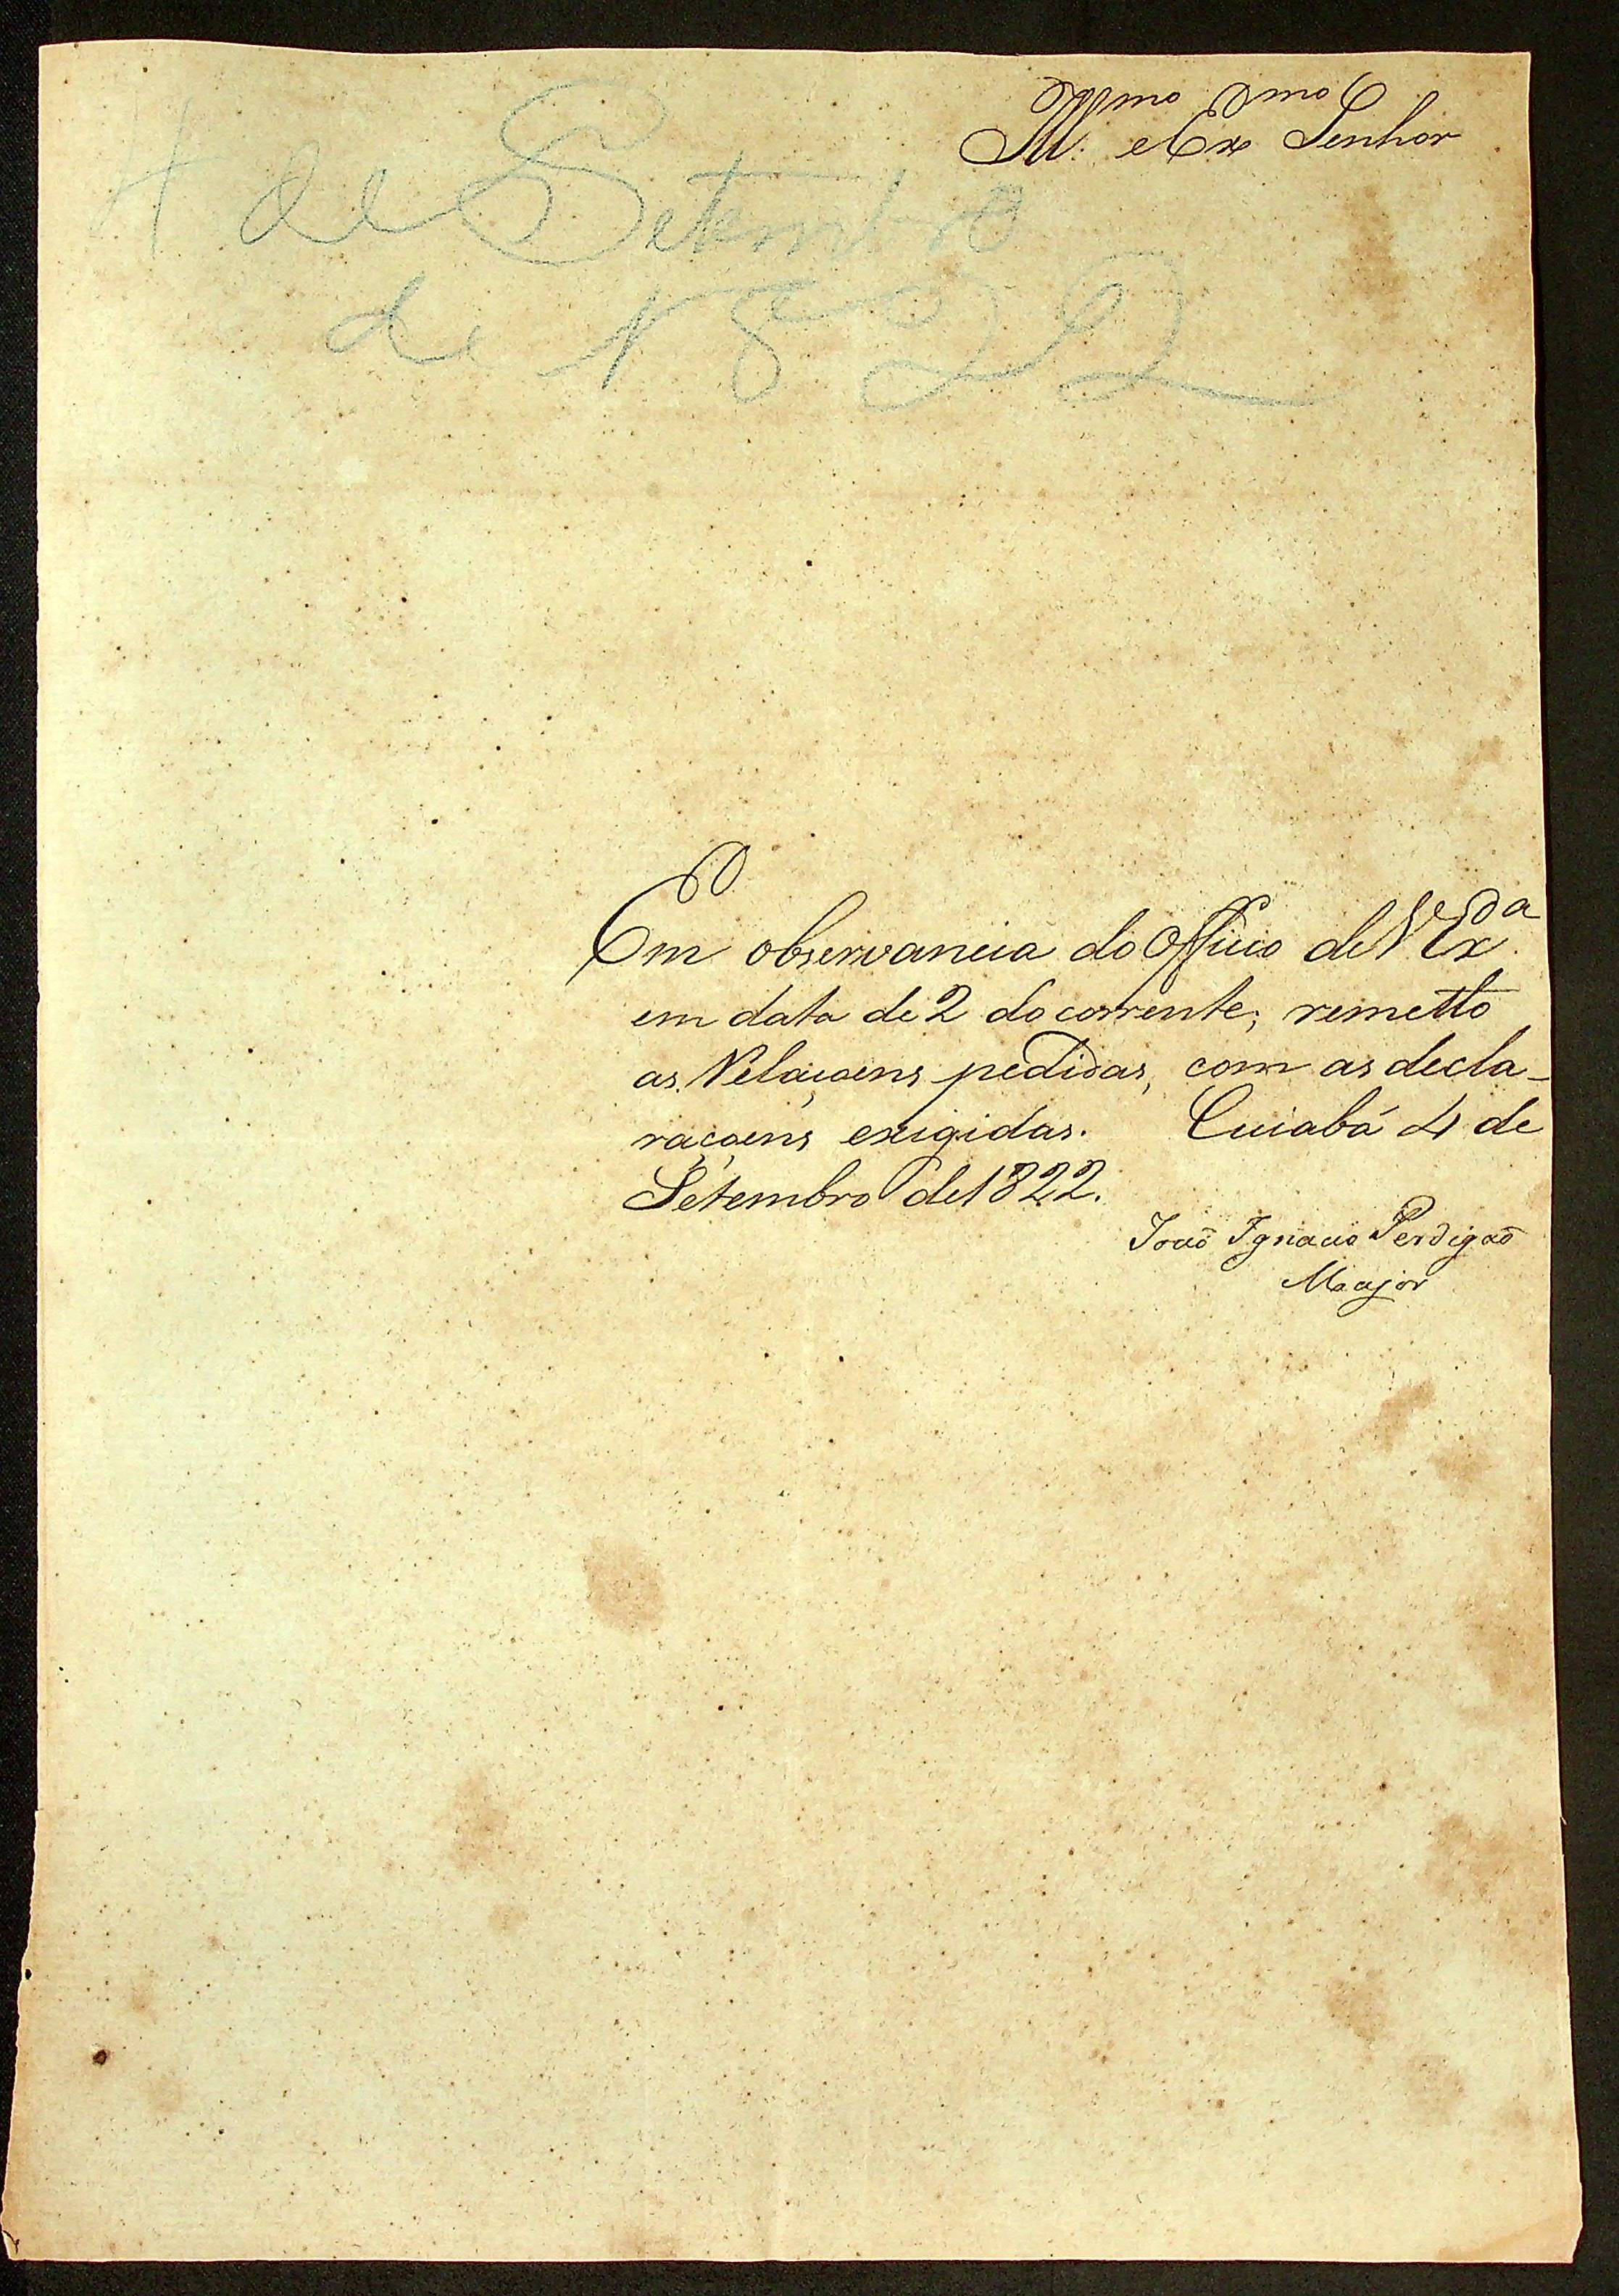 Ill.mo e Ex.mo Senhor
4 de Setembro
de 1822
Em observancia do Officio de V Ex.a
em data de 2 do corrente; remetto
as Relaçoens pedidas, com as decla-
raçoens exigidas. Cuiabá 4 de
Setembro de 1822.
João Ignacio Perdigaõ
Major